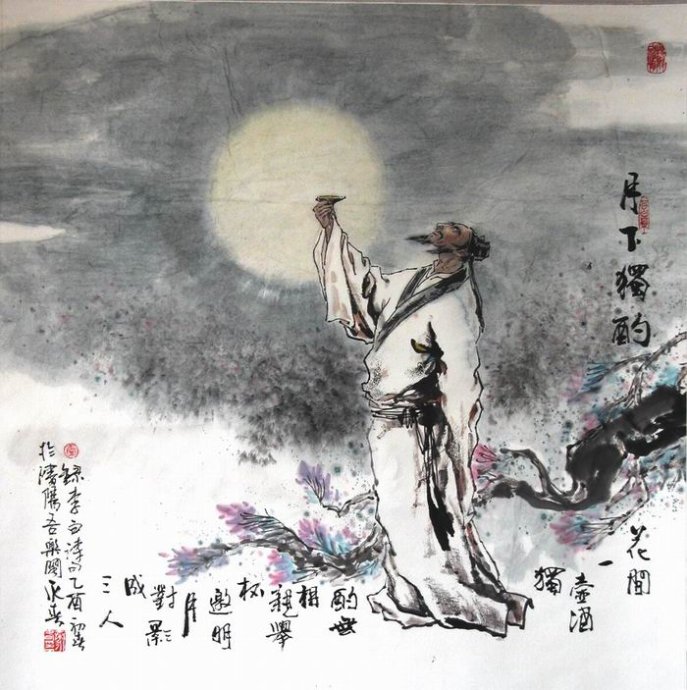 月下獨酌
花間
一
壺酒
獨
酌無
相
親舉
杯
邀明
月
對影
成
三人
錄李白詩句乙酉初春
於吾樂閣